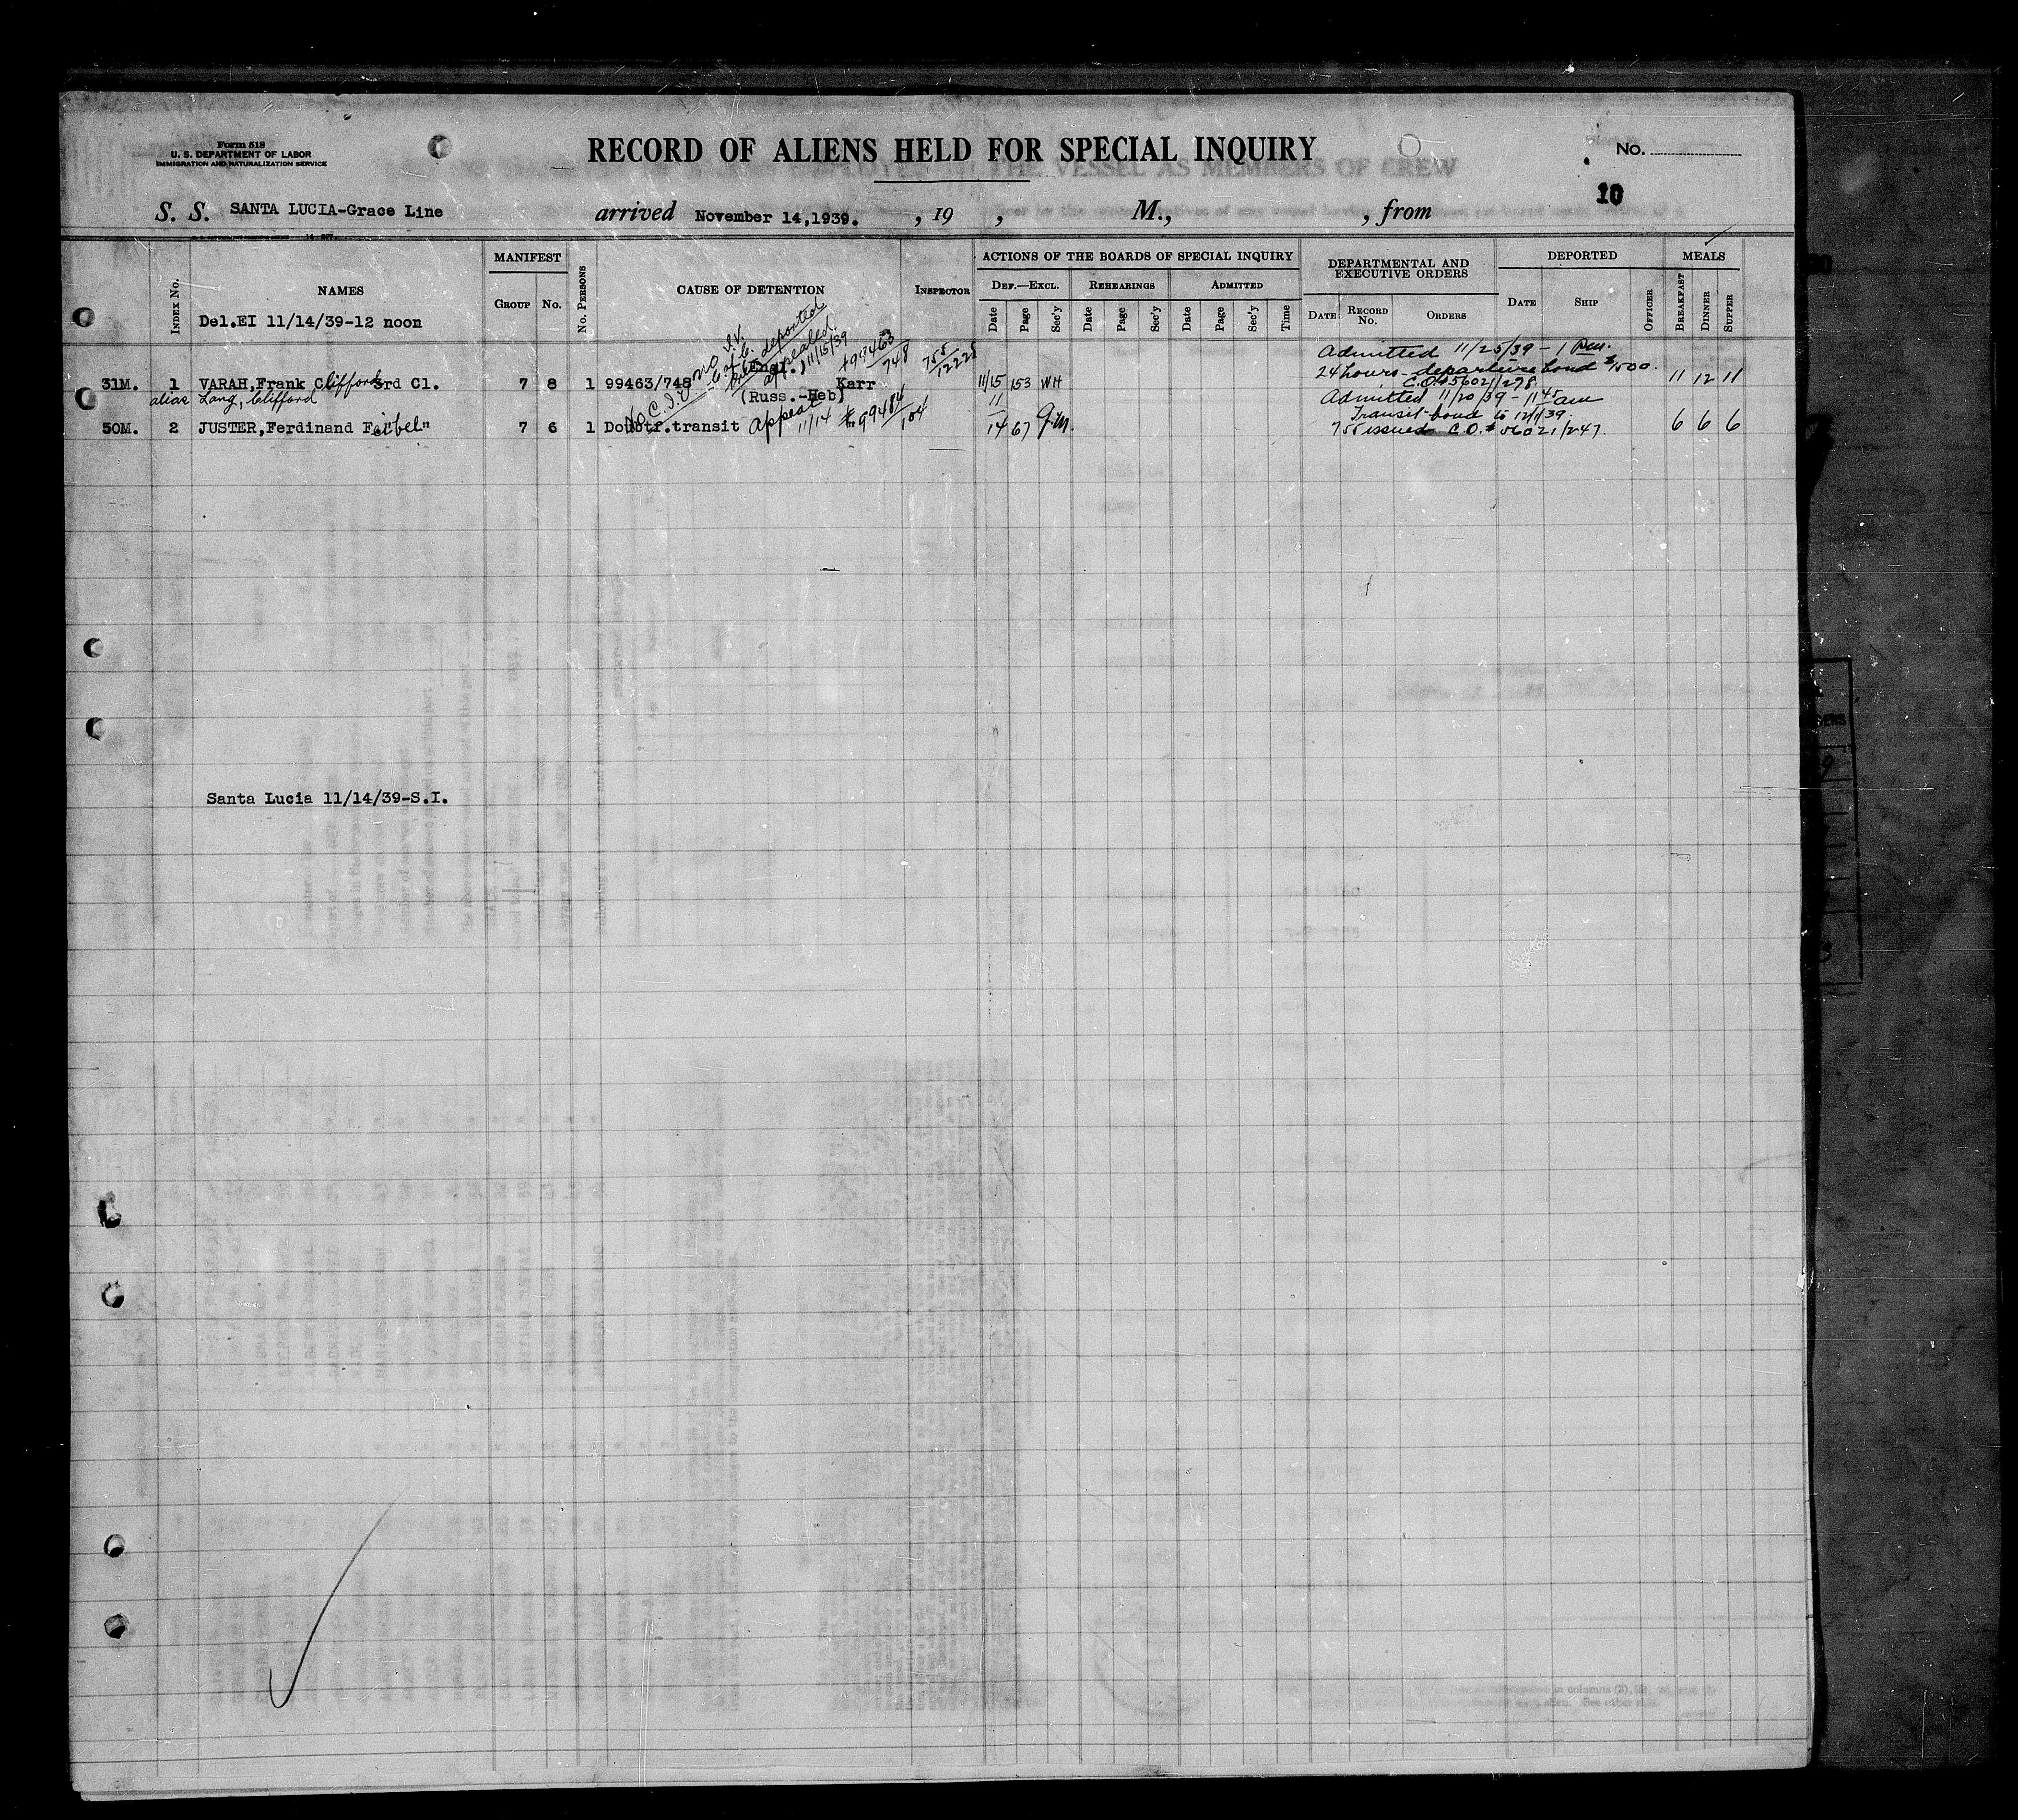 Form 518
U. S. DEPARTMENT OF LABOR
IMMIGRATION AND NATURALIZATION SERVICE
RECORD OF ALIENS HELD FOR SPECIAL INQUIRY
No.
10
S. S. SANTA LUCIA-Grace Line arrived November 14,1939. , 19 , M., , from
INDEX No. NAMES MANIFEST GROUP No. No. PERSONS CAUSE OF DETENTION INSPECTOR ACTIONS OF THE BOARDS OF SPECIAL INQUIRY DEPARTMENTAL AND EXECUTIVE ORDERS DEPORTED MEALS
DEF.—EXCL. REHEARINGS ADMITTED
Date Page Sec'y Date Page Sec'y Date Page Sec'y Time DATE RECORD No. ORDERS DATE SHIP OFFICER BREAKFAST DINNER SUPPER
Del.EI 11/14/39-12 noon
no I.V.
deported
appealed 11/15/39
99463/748
755/12228
Admitted 11/25/39 - 1 P.m.
24 hours - departure bond $500.
C.O.# 56021/278
31M. 1 VARAH,Frank Clifford 3rd Cl. 7 8 1 99463/748 (Engl.) Karr 11/15 153 WH 11 12 11
alias Lang, Clifford
(Russ.-Heb)
Admitted 11/20/39 - 11 45 am
Transit bond to 12/1/39.
755 issued C.O.# 56021/247.
50M. 2 JUSTER,Ferdinand Feibel" 7 6 1 Do transit Appeal 11/14 #99484/104 11/14 67 6 6 6
Santa Lucia 11/14/39-S.I.